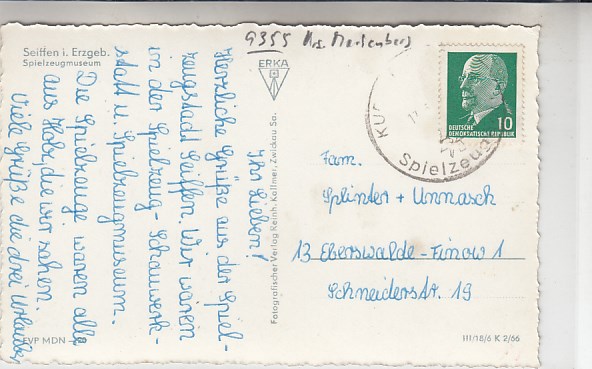 Seiffen i. Erzgeb.
Spielzeugmuseum
9355 Krs. Marienberg
ERKA
Ihr Lieben!
Herzliche Grüße aus der Spiel-
zeugstadt Seiffen. Wir waren
in der Spielzeug-Schauwerk-
statt u. Spielzeugmuseum.
Die Spielzeuge waren alle
aus Holz, die wir sahen.
Viele Grüße die drei Urlauber
Fotografischer Verlag Reinh. Kallmer, Zwickau Sa.
EVP MDN
KUR
Spielzeug
10
DEUTSCHE
DEMOKRATISCHE REPUBLIK
Fam.
Splinter + Unnasch
13 Eberswalde-Finow 1
Schneiderstr. 19
III/18/6 K 2/66